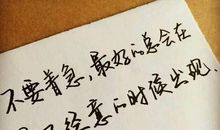 不要着急,最好的总会在
不经意的时候出现.